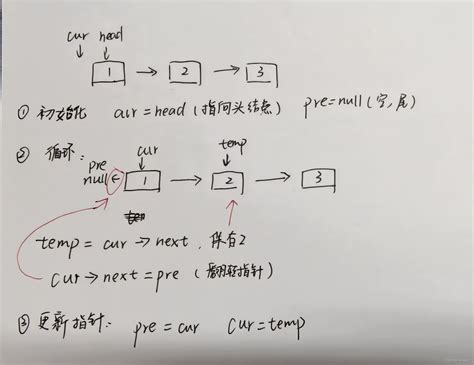 cur head
1 → 2 → 3
① 初始化 cur = head (指向头结点) pre = null (空,尾)
② 循环:
pre cur temp
null ← 1 → 2 → 3
temp = cur → next , 保存2
cur → next = pre (翻转指针)
③ 更新指针: pre = cur cur = temp